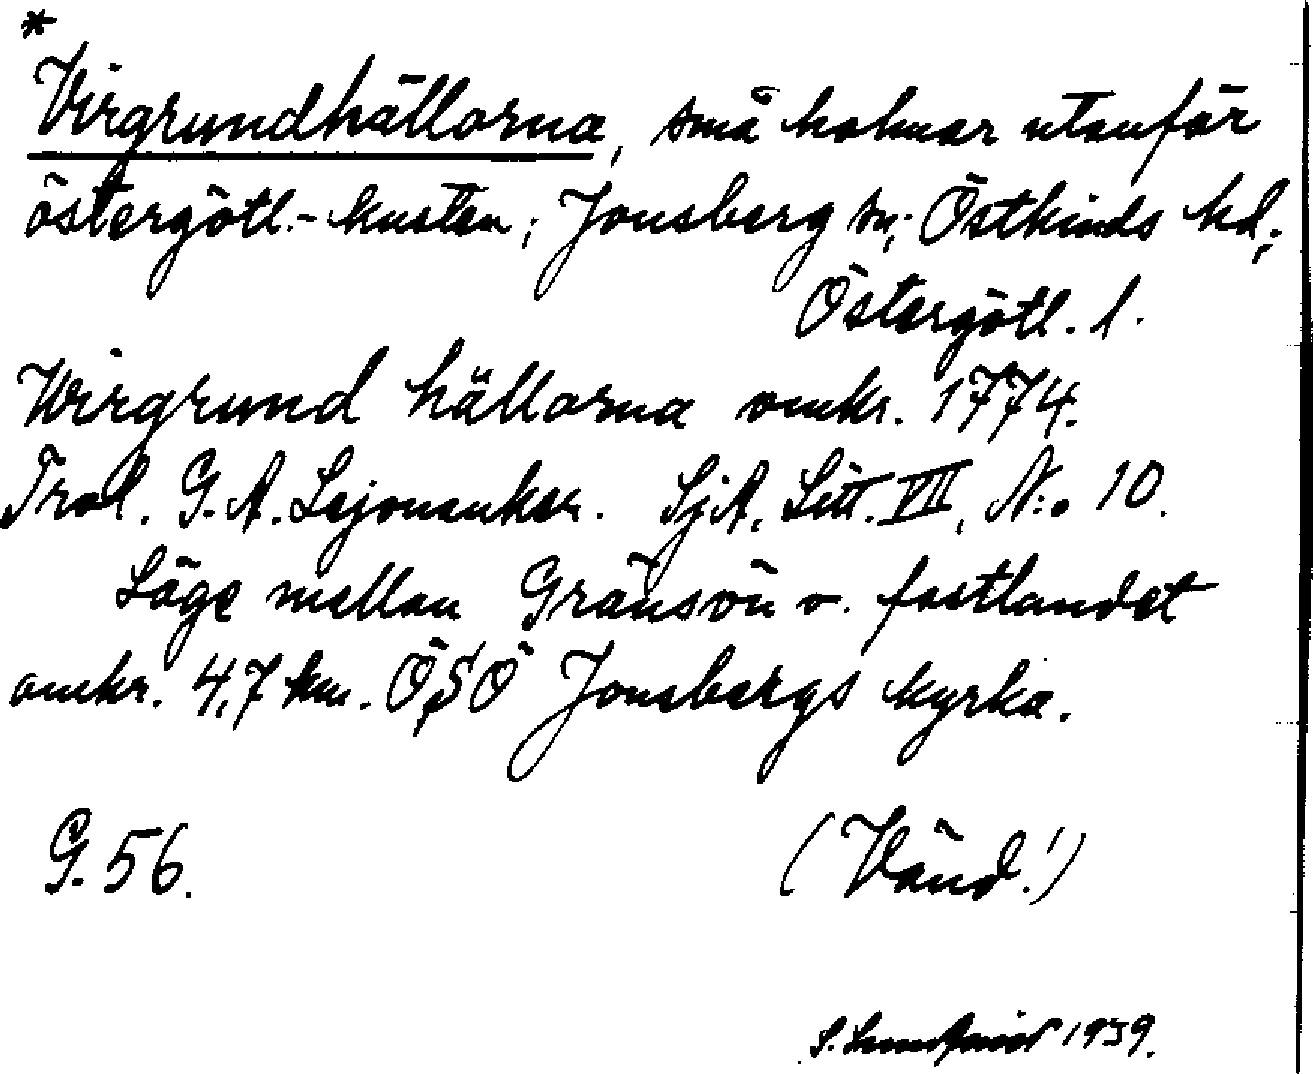 *
Virgrundhällorna, små holmar utanför
östergötl.-kusten; Jonsberg sn; Östkinds hd;
Östergötl. l.
Wirgrund hällorna omkr. 1774.
Trol. G. A. Lejonanker. SjA, Litt. VII, N:o 10.
Läge mellan Gränsön o. fastlandet
omkr. 4,7 km. ÖSÖ Jonsbergs kyrka.
G. 56.
(Vänd!)
S. 1939.